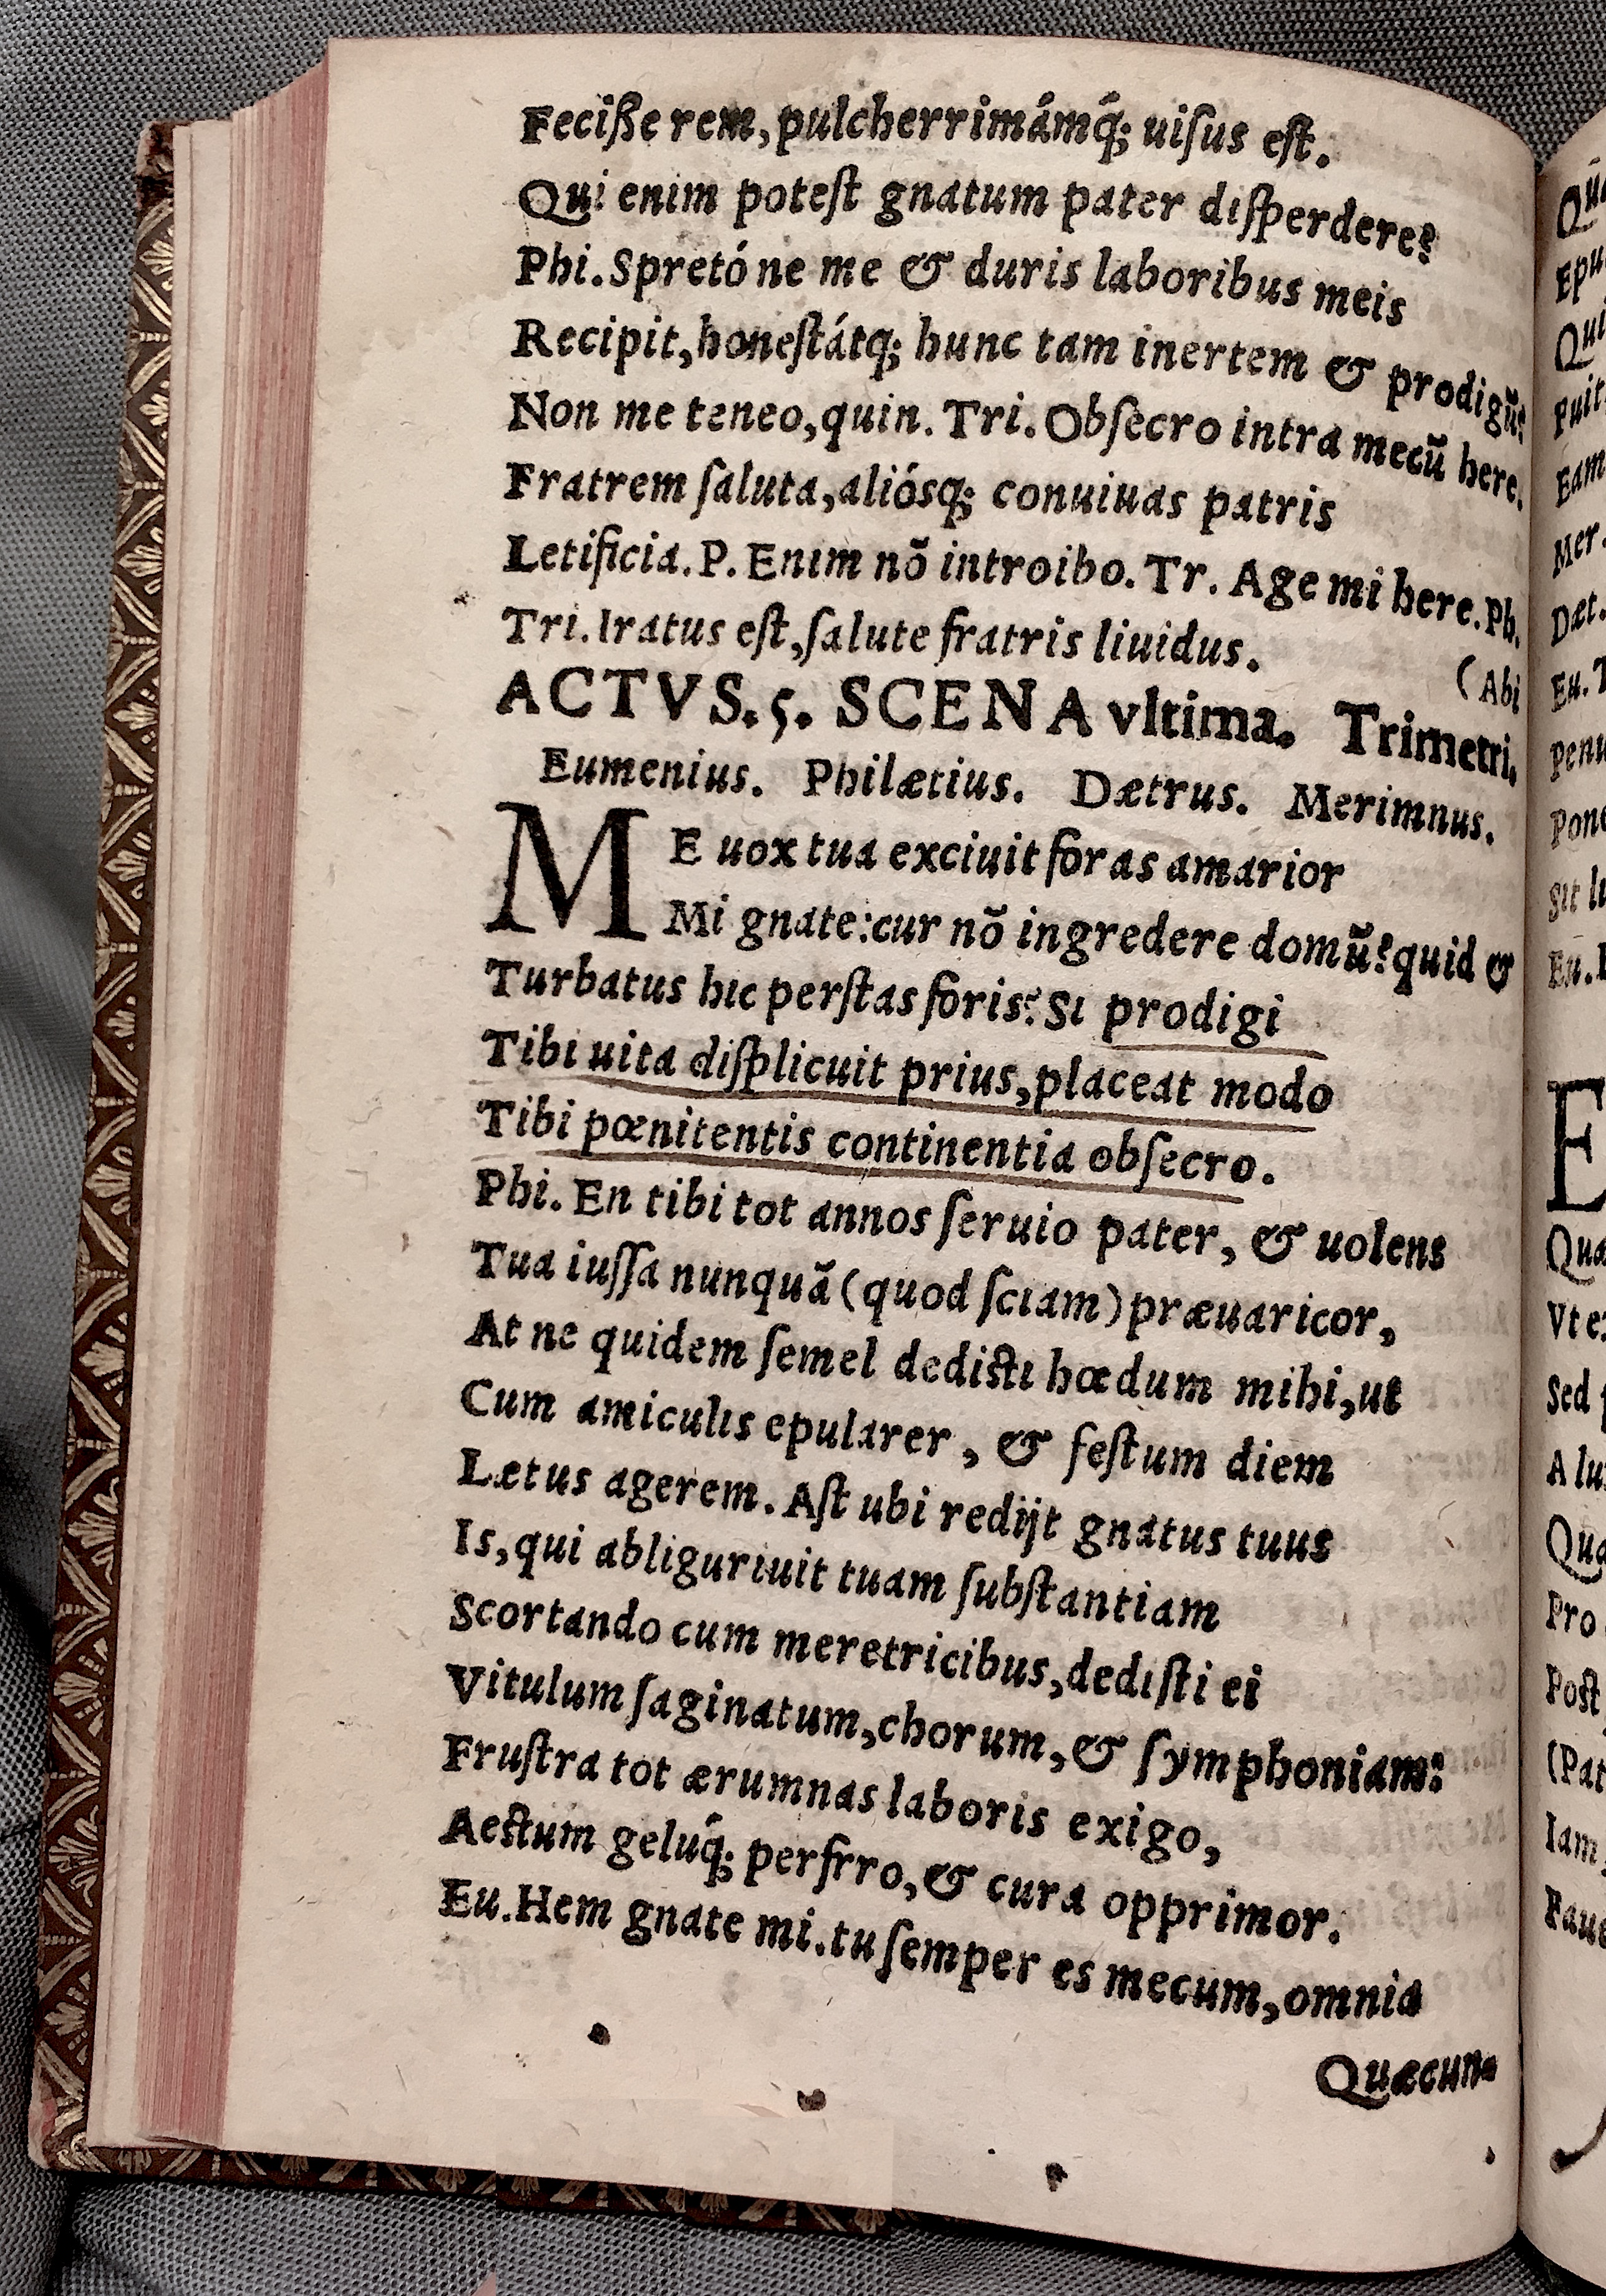 Feciße rem, pulcherrimámq́; uiſus eſt.
Qui enim poteſt gnatum pater diſperdere?
Phi. Spretóne me & duris laboribus meis
Recipit, honeſtátq; hunc tam inertem & prodigũ?
Non me teneo, quin. Tri. Obſecro intra mecũ here.
Fratrem ſaluta, aliósq; conuiuas patris
Letificia. P. Enim nõ introibo. Tr. Age mi here. Ph.
(Abi
Tri. Iratus eſt, ſalute fratris liuidus.
ACTVS. 5. SCENA vltima. Trimetri.
Eumenius. Philætius. Dætrus. Merimnus.
ME uox tua exciuit foras amarior
Mi gnate: cur nõ ingredere domũ? quid &
Turbatus hic perſtas foris? Si prodigi
Tibi uita diſplicuit prius, placeat modo
Tibi pœnitentis continentia obſecro.
Phi. En tibi tot annos ſeruio pater, & uolens
Tua iuſſa nunquã (quod ſciam) præuaricor,
At ne quidem ſemel dediſti hœdum mihi, ut
Cum amiculis epularer, & feſtum diem
Lætus agerem. Aſt ubi redijt gnatus tuus
Is, qui abliguriuit tuam ſubſtantiam
Scortando cum meretricibus, dediſti ei
Vitulum ſaginatum, chorum, & ſymphoniam:
Fruſtra tot ærumnas laboris exigo,
Aeſtum gelúq́; perfrro, & cura opprimor.
Eu. Hem gnate mi. tu ſemper es mecum, omnia
Quæcun-
Qui
Mer.
Dæt.
Sed
A lu
Pro
Poſt
(Pat
Iam